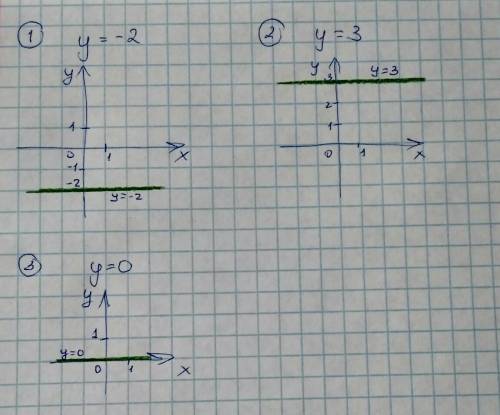 1 y = -2
y
1
0 1 x
-1
-2
y=-2
2 y = 3
y
3 y=3
2
1
0 1 x
3 y=0
y
1
y=0
0 1 x